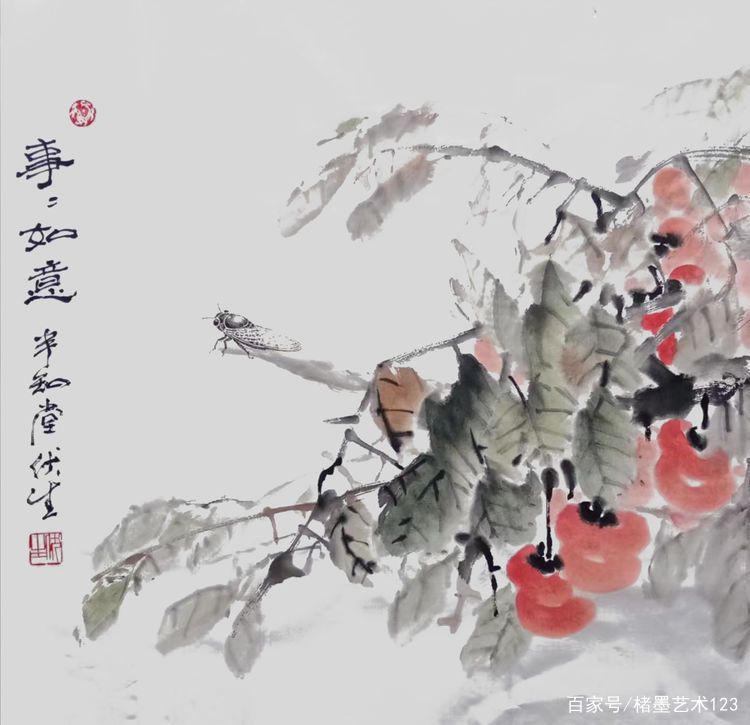 事〻如意
半知堂伏生
百家号/楮墨艺术123